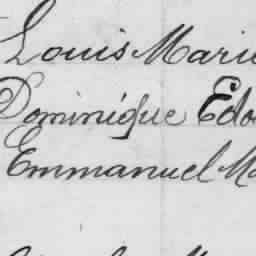 Louis Marie
Dominique Edo
Emmanuel Ma